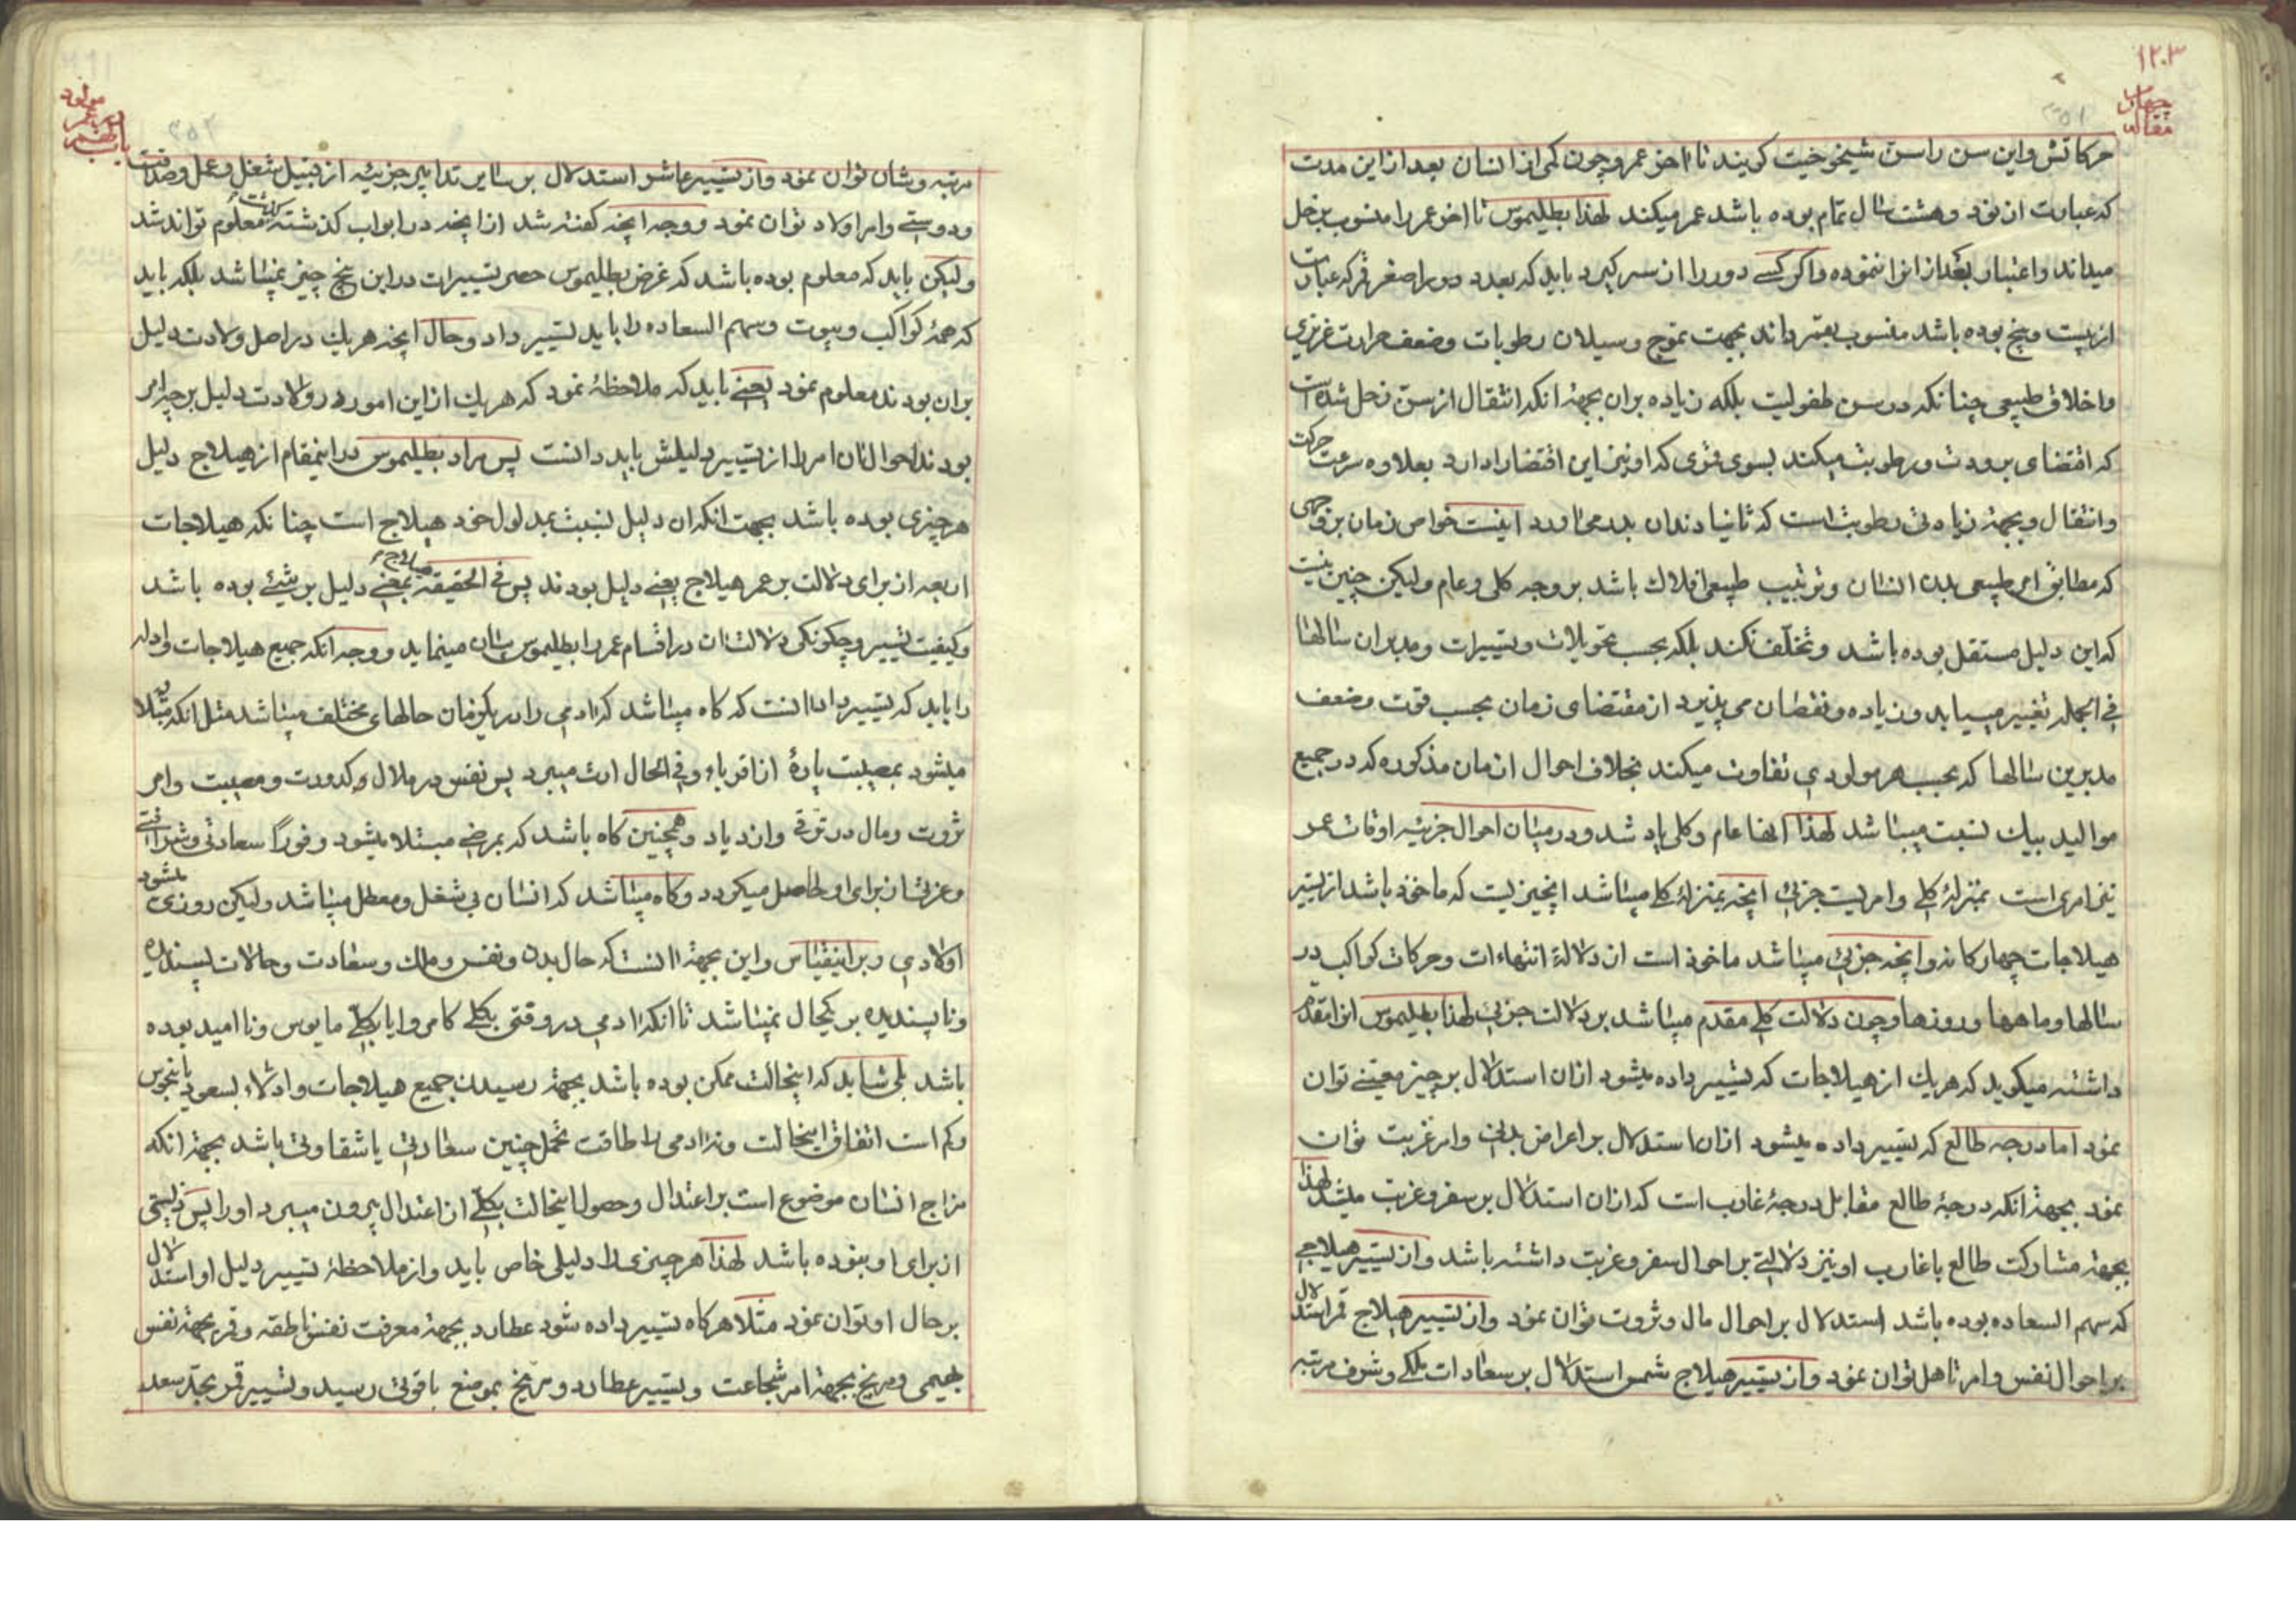 ۱۲۰۳
مقاله چهارم
۲۵۱
حرکاتش و این سن را سن شیخوخیت کویند تا اخر عمر و چون کمی از انسان بعد از این مدت
که عبارت از نود و هشت سال تمام بوده باشد عمر میکند لهذا بطلیموس تا اخر عمر را منسوب بزحل
میداند و اعتبار بعد از انرا ننموده و اکر کسے دور را از سر کیرد باید که بعدد دور اصغر قمر که عبارت
از بیست و پنج بوده باشد منسوب بقمر داند بجهت تموج و سیلان رطوبات و ضعف حرارت غریزی
و اخلاق طبیعی چنانکه در سن طفولیت بلکه زیاده بران بجهة انکه انتقال از سن زحل شده است
که اقتضای برودت و رطوبت میکند بسوی قمری که او نیز این اقتضا را دارد بعلاوه سرعت حرکت
و انتقال و بجهة زیادتی رطوبت است که ثانیا دندان بدر می اورد اینست خواص زمان بر وجهی
که مطابق امر طبیعی بدن انسان و ترتیب طبیعی افلاک باشد بر وجه کلی و عام ولیکن چنین نیست
که این دلیل مستقل بوده باشد و تخلّف نکند بلکه بحسب تحویلات و تسییرات و مدبران سالها
فی الجمله تغییر مییابد و زیاده و نقصان می پذیرد از مقتضای زمان بحسب قوت و ضعف
مدبرین سالها که بحسب هر مولودی تفاوت میکند بخلاف احوال ازمان مذکوره که در جمیع
موالید بیک نسبت میباشد لهذا انها عام و کلی یاد شد و در میان احوال جزئیه اوقات عمر
نیز امری است بمنزلهٔ کلے و امریست جزئی انچه بمنزلهٔ کلے میباشد انچیزیست که ماخوذ باشد از تسییر
هیلاجات چهارکانه و انچه جزئی میباشد ماخوذ است از دلالة انتهاءات و حرکات کواکب در
سالها و ماهها و روزها و چون دلالت کلے مقدم میباشد بر دلالت جزئی لهذا بطلیموس انرا مقدم
داشته میکوید که هریک از هیلاجات که تسییر داده میشود ازان استدلال بر چیز معینے توان
نمود اما درجه طالع که تسییر داده میشود ازان استدلال بر اعراض بدنی و امر غربت توان
نمود بجهة انکه درجهٔ طالع مقابل درجهٔ غارب است که ازان استدلال بر سفر و غربت میشد لهذا
بجهة مشارکت طالع با غارب او نیز دلالتے بر احوال سفر و غربت داشته باشد و از تسییر هیلاجے
که سهم السعاده بوده باشد استدلال بر احوال مال و ثروت توان نمود و از تسییر هیلاج قمر استدلال
بر احوال نفس و امر تاهل توان نمود و از تسییر هیلاج شمس استدلال بر سعادات ملکے و شرف مرتبه
۲۵۲
مولود
مرتبه و شان توان نمود و از تسییر عاشر استدلال بر سایر تدابیر جزئیه از قبیل شغل و عمل و صداقت
و دوستے و امر اولاد توان نمود و وجه انچه کفته شد از انچه در ابواب کذشته کذشت معلوم تواند شد
ولیکن باید که معلوم بوده باشد که غرض بطلیموس حصر تسییرات در این پنج چیز نمیباشد بلکه باید
که همهٔ کواکب و بیوت و سهم السعاده را باید تسییر داد و حال انچه هر یک در اصل ولادت دلیل
بران بودند معلوم نمود یعنے باید که ملاحظهٔ نمود که هریک از این امور در ولادت دلیل بر چه امر
بودند احوال ان امر را از تسییر دلیلش باید دانست پس مراد بطلیموس در اینمقام از هیلاج دلیل
هر چیزی بوده باشد بجهت انکه ان دلیل نسبت بمدلول خود هیلاج است چنانکه هیلاجات
اربعه از برای دلالت بر عمر هیلاج یعنے دلیل بودند پس فی الحقیقة هیلاج بمعنے دلیل بر شیئے بوده باشد
و کیفیت تسییر و چکونکی دلالت ان در اقسام عمر را بطلیموس بیان مینماید و وجه انکه جمیع هیلاجات و ادله
را باید که تسییر داد انست که کاه میباشد که ادمی را در یکزمان حالهای مختلف میباشد مثل انکه مبتلا
میشود بمصیبت پارهٔ از اقرباء و فی الحال ارث میبرد پس نفس در ملال و کدورت و مصیبت و امر
ثروت و مال در ترقی و ازدیاد و همچنین کاه باشد که بمرضے مبتلا میشود و فوراً سعادتی و شرافتے
و عزتی از برای او حاصل میکردد و کاه میباشد که انسان بی شغل و معطل میباشد ولیکن روزی میشود
اولادی و بر اینقیاس و این بجهة انست که حال بدن و نفس و مال و سعادت و حالات پسندیده
و ناپسندیده بر یکحال نمیباشد تا انکه ادمی در وقتی بکلے کامروا یا بکلے مایوس و ناامید بوده
باشد بلی شاید که اینحالت ممکن بوده باشد بجهة رسیدن جمیع هیلاجات و ادلاء بسعود یا نحوس
و کم است اتفاق اینحالت و نه ادمی را طاقت تحمل چنین سعادتی یا شقاوتی باشد بجهة انکه
مزاج انسان موضوع است بر اعتدال و حصول اینحالت بکلّے از اعتدال بیرون میبرد او را پس زیستی
از برای او نبوده باشد لهذا هر چیزی را دلیلی خاص باید و از ملاحظهٔ تسییر دلیل او استدلال
بر حال او توان نمود مثلا هرکاه تسییر داده شود عطارد بجهة معرفت نفس ناطقه و قمر بجهة نفس
بهیمی و مریخ بجهة امر شجاعت و تسییر عطارد و مریخ بموضع باقوتی رسید و تسییر قمر بحد سعد